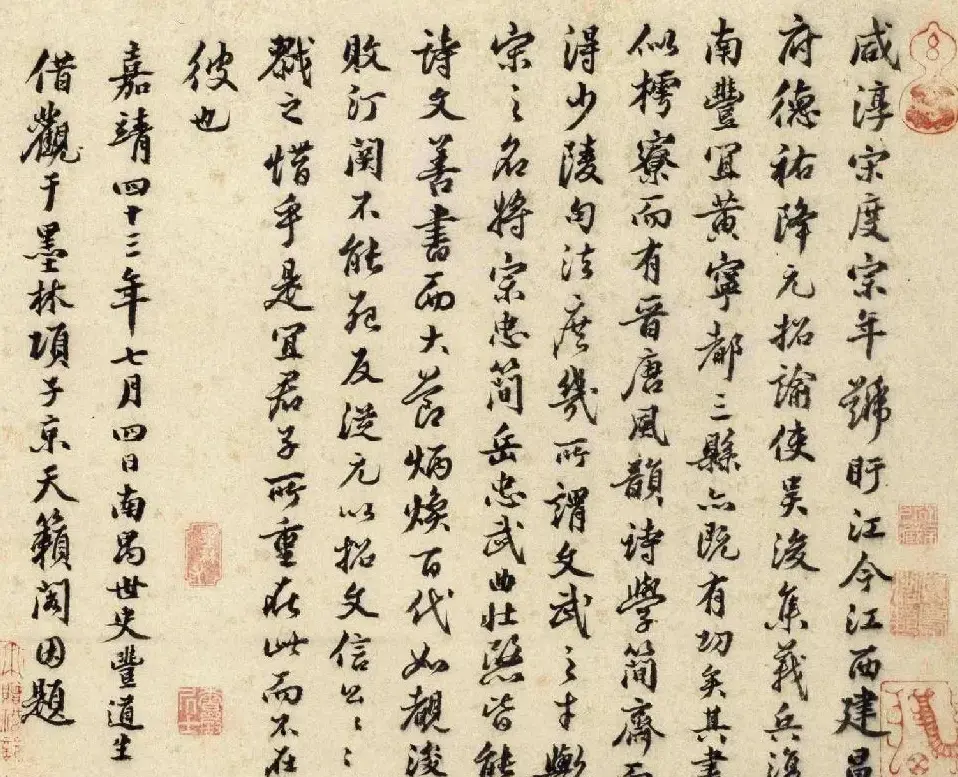 咸淳宋度宗年號盱江今江西建昌
府德祐降元招諭使吴浚集義兵
南豐宜黃寧都三縣亦既有功矣其書
似樗寮而有晉唐風韻詩學簡齋而
得少陵句法庶幾所謂文武之才
宋之名將宗忠簡岳忠武曲壯愍皆能
詩文善書而大節炳煥百代如觀浚
敗汀闗不能死反從元以招文信公〻〻
戮之惜乎是宜君子所重在此而不在
彼也
嘉靖四十三年七月四日南禺世史豐道生
借觀于墨林項子京天籟閣因題